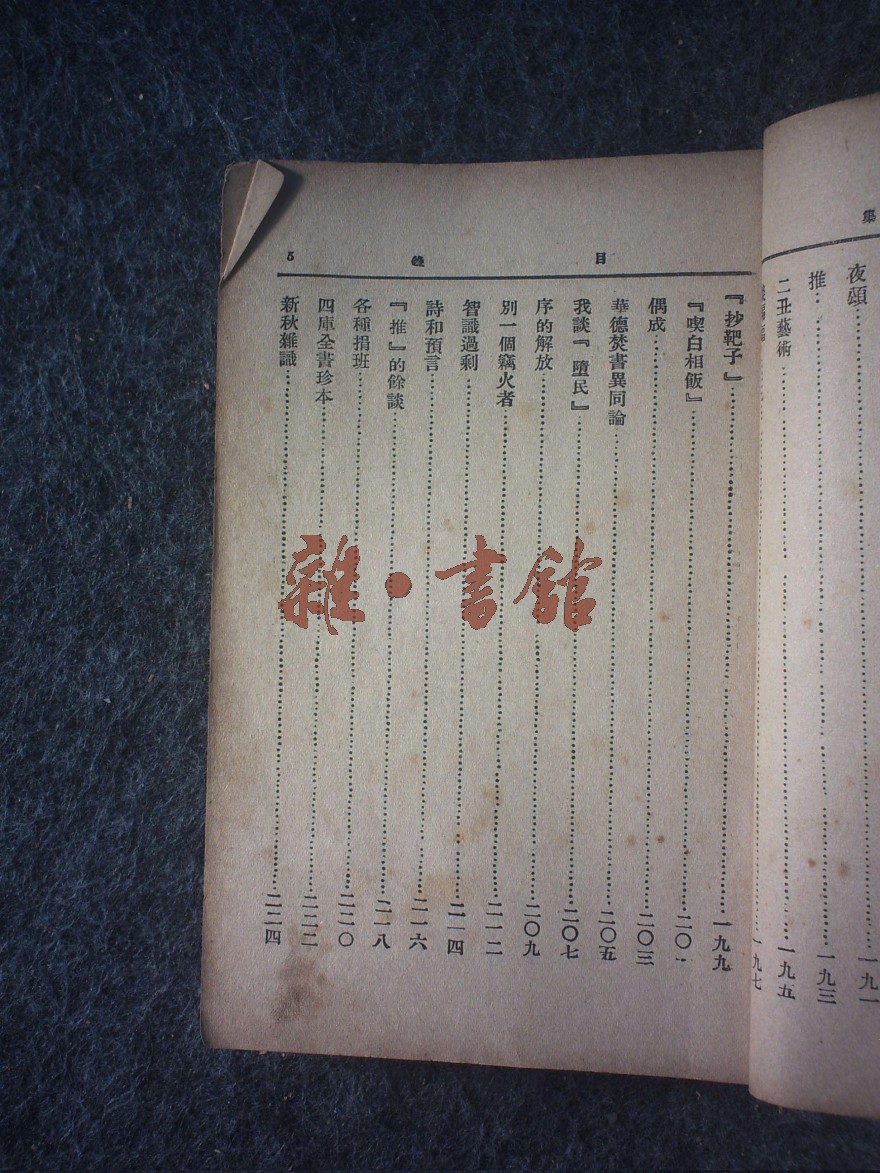 集
夜頌……一九一
推……一九三
二丑藝術……一九五
一九七
目錄 5
『抄靶子』……一九九
『喫白相飯』……二〇一
偶成……二〇三
華德焚書異同論……二〇五
我談『墮民』……二〇七
序的解放……二〇九
別一個竊火者……二一二
智識過剩……二一四
詩和預言……二一六
『推』的餘談……二一八
各種捐班……二二〇
四庫全書珍本……二二二
新秋雜識……二二四
雜·書館